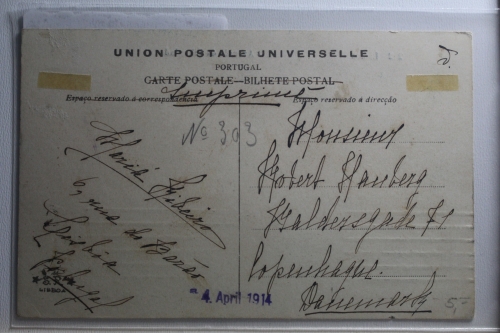 UNION POSTALE UNIVERSELLE
PORTUGAL
CARTE POSTALE—BILHETE POSTAL
Imprimé
Espaço reservado á correspondencia
Espaço reservado á direcção
Nº 303
Maria Ribeiro
6, rua do Barão
Lisbôa
Portugal
LISBOA
4. April 1914
Monsieur
Robert Hamberg
Baldersgade 71
Copenhague.
Danemark
5,-